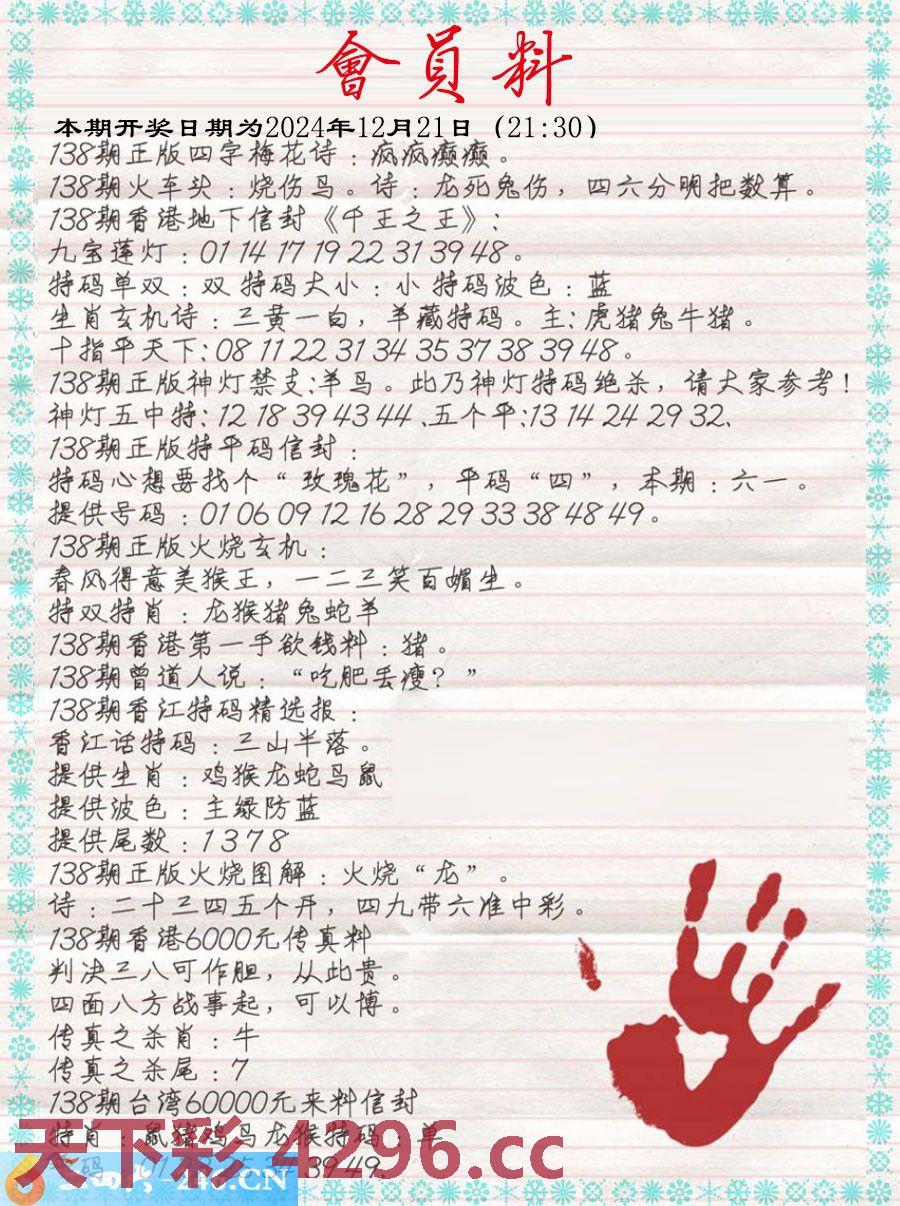 會員料
本期开奖日期为2024年12月21日（21:30）
138期正版四字梅花诗：疯疯癫癫。
138期火车头：烧伤鸟。诗：龙死兔伤，四六分明把数算。
138期香港地下信封《千王之王》：
九宝莲灯：01 14 17 19 22 31 39 48。
特码单双：双 特码大小：小 特码波色：蓝
生肖玄机诗：三黄一白，羊藏特码。主：虎猪兔牛猪。
十指平天下：08 11 22 31 34 35 37 38 39 48。
138期正版神灯禁支：羊鸟。此乃神灯特码绝杀，请大家参考！
神灯五中特：12 18 39 43 44、五个平：13 14 24 29 32、
138期正版特平码信封：
特码心想要找个“玫瑰花”，平码“四”，本期：六一。
提供号码：01 06 09 12 16 28 29 33 38 48 49。
138期正版火烧玄机：
春风得意美猴王，一二三笑百媚生。
特双特肖：龙猴猪兔蛇羊
138期香港第一手欲钱料：猪。
138期曾道人说：“吃肥丢瘦？”
138期香江特码精选报：
香江话特码：三山半落。
提供生肖：鸡猴龙蛇鸟鼠
提供波色：主绿防蓝
提供尾数：1378
138期正版火烧图解：火烧“龙”。
诗：二十三四五个开，四九带六准中彩。
138期香港6000元传真料
判决三八可作胆，从此贵。
四面八方战事起，可以博。
传真之杀肖：牛
传真之杀尾：7
138期台湾60000元来料信封
特肖：鼠猪鸡鸟龙猴特码：单
39 49、
天下彩 4296.cc
246.CN